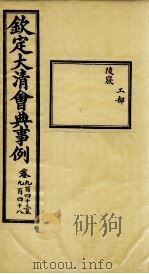 工部
陵寢
欽定大清會典事例
卷九百四十三至
九百四十八
mtoou.info